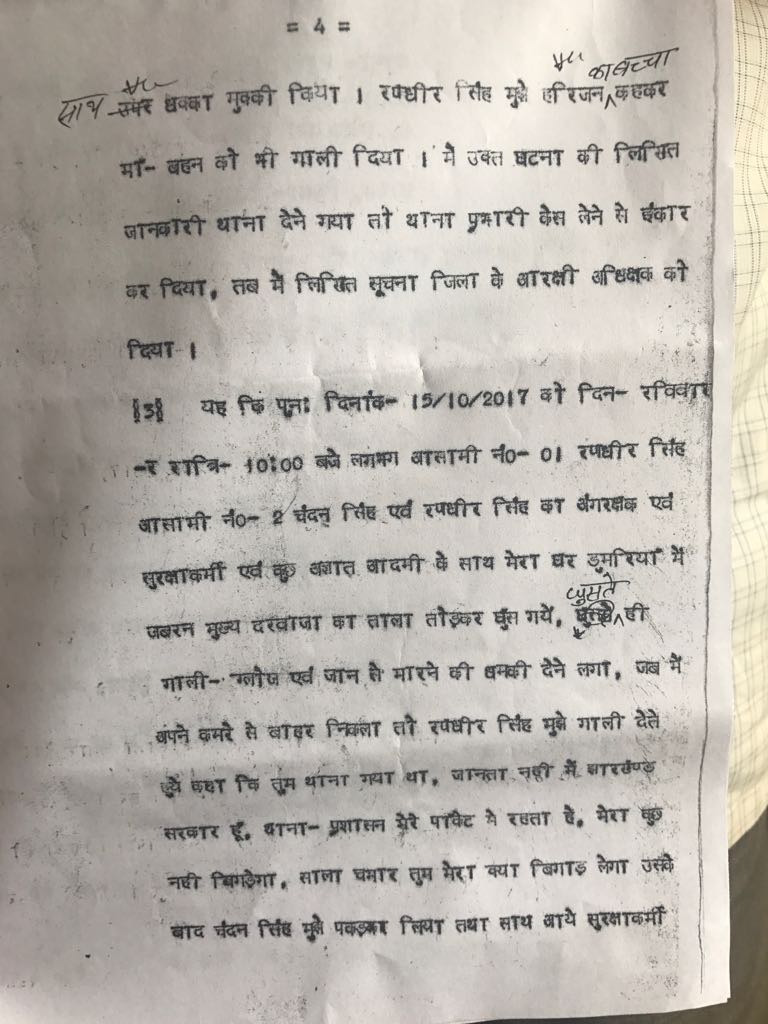 = 4 =
का बच्चा
साथ धक्का मुक्की किया । रणधीर सिंह मुझे हरिजन कहकर
माँ- बहन को भी गाली दिया । मे उक्त घटना की लिखित
जानकारी थाना देने गया तो थाना प्रभारी केस लेने से इंकार
कर दिया, तब मैं लिखित सूचना जिला के आरक्षी अधिक्षक को
दिया ।
§3§ यह कि पुनः दिनांक- 15/10/2017 को दिन- रविवार
-र रात्रि- 10:00 बजे लगभग आसामी नं0- 01 रणधीर सिंह
आसामी नं0- 2 चंदन सिंह एवं रणधीर सिंह का अंगरक्षक एवं
सुरक्षाकर्मी एवं कुछ अज्ञात आदमी के साथ मेरा घर डुमरियां में
घुसते
जबरन मुख्य दरवाजा का ताला तोड़कर घुस गये, ही
गाली- ग्लौज एवं जान से मारने की धमकी देने लगा, जब मैं
अपने कमरे से बाहर निकला तो रणधीर सिंह मुझे गाली देते
हुये कहा कि तुम थाना गया था, जानता नहीं मैं झारखण्ड
सरकार हूँ, थाना- प्रशासन मेरे पाकेट मे रहता है, मेरा कुछ
नही बिगड़ेगा, साला चमार तुम मेरा क्या बिगाड लेगा उसके
बाद चंदन सिंह मुझे पकड़कर लिया तथा साथ आये सुरक्षाकर्मी